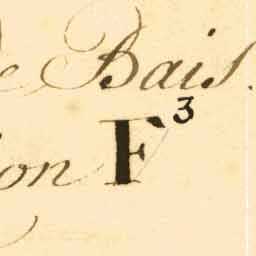 de Bais.
ion F³